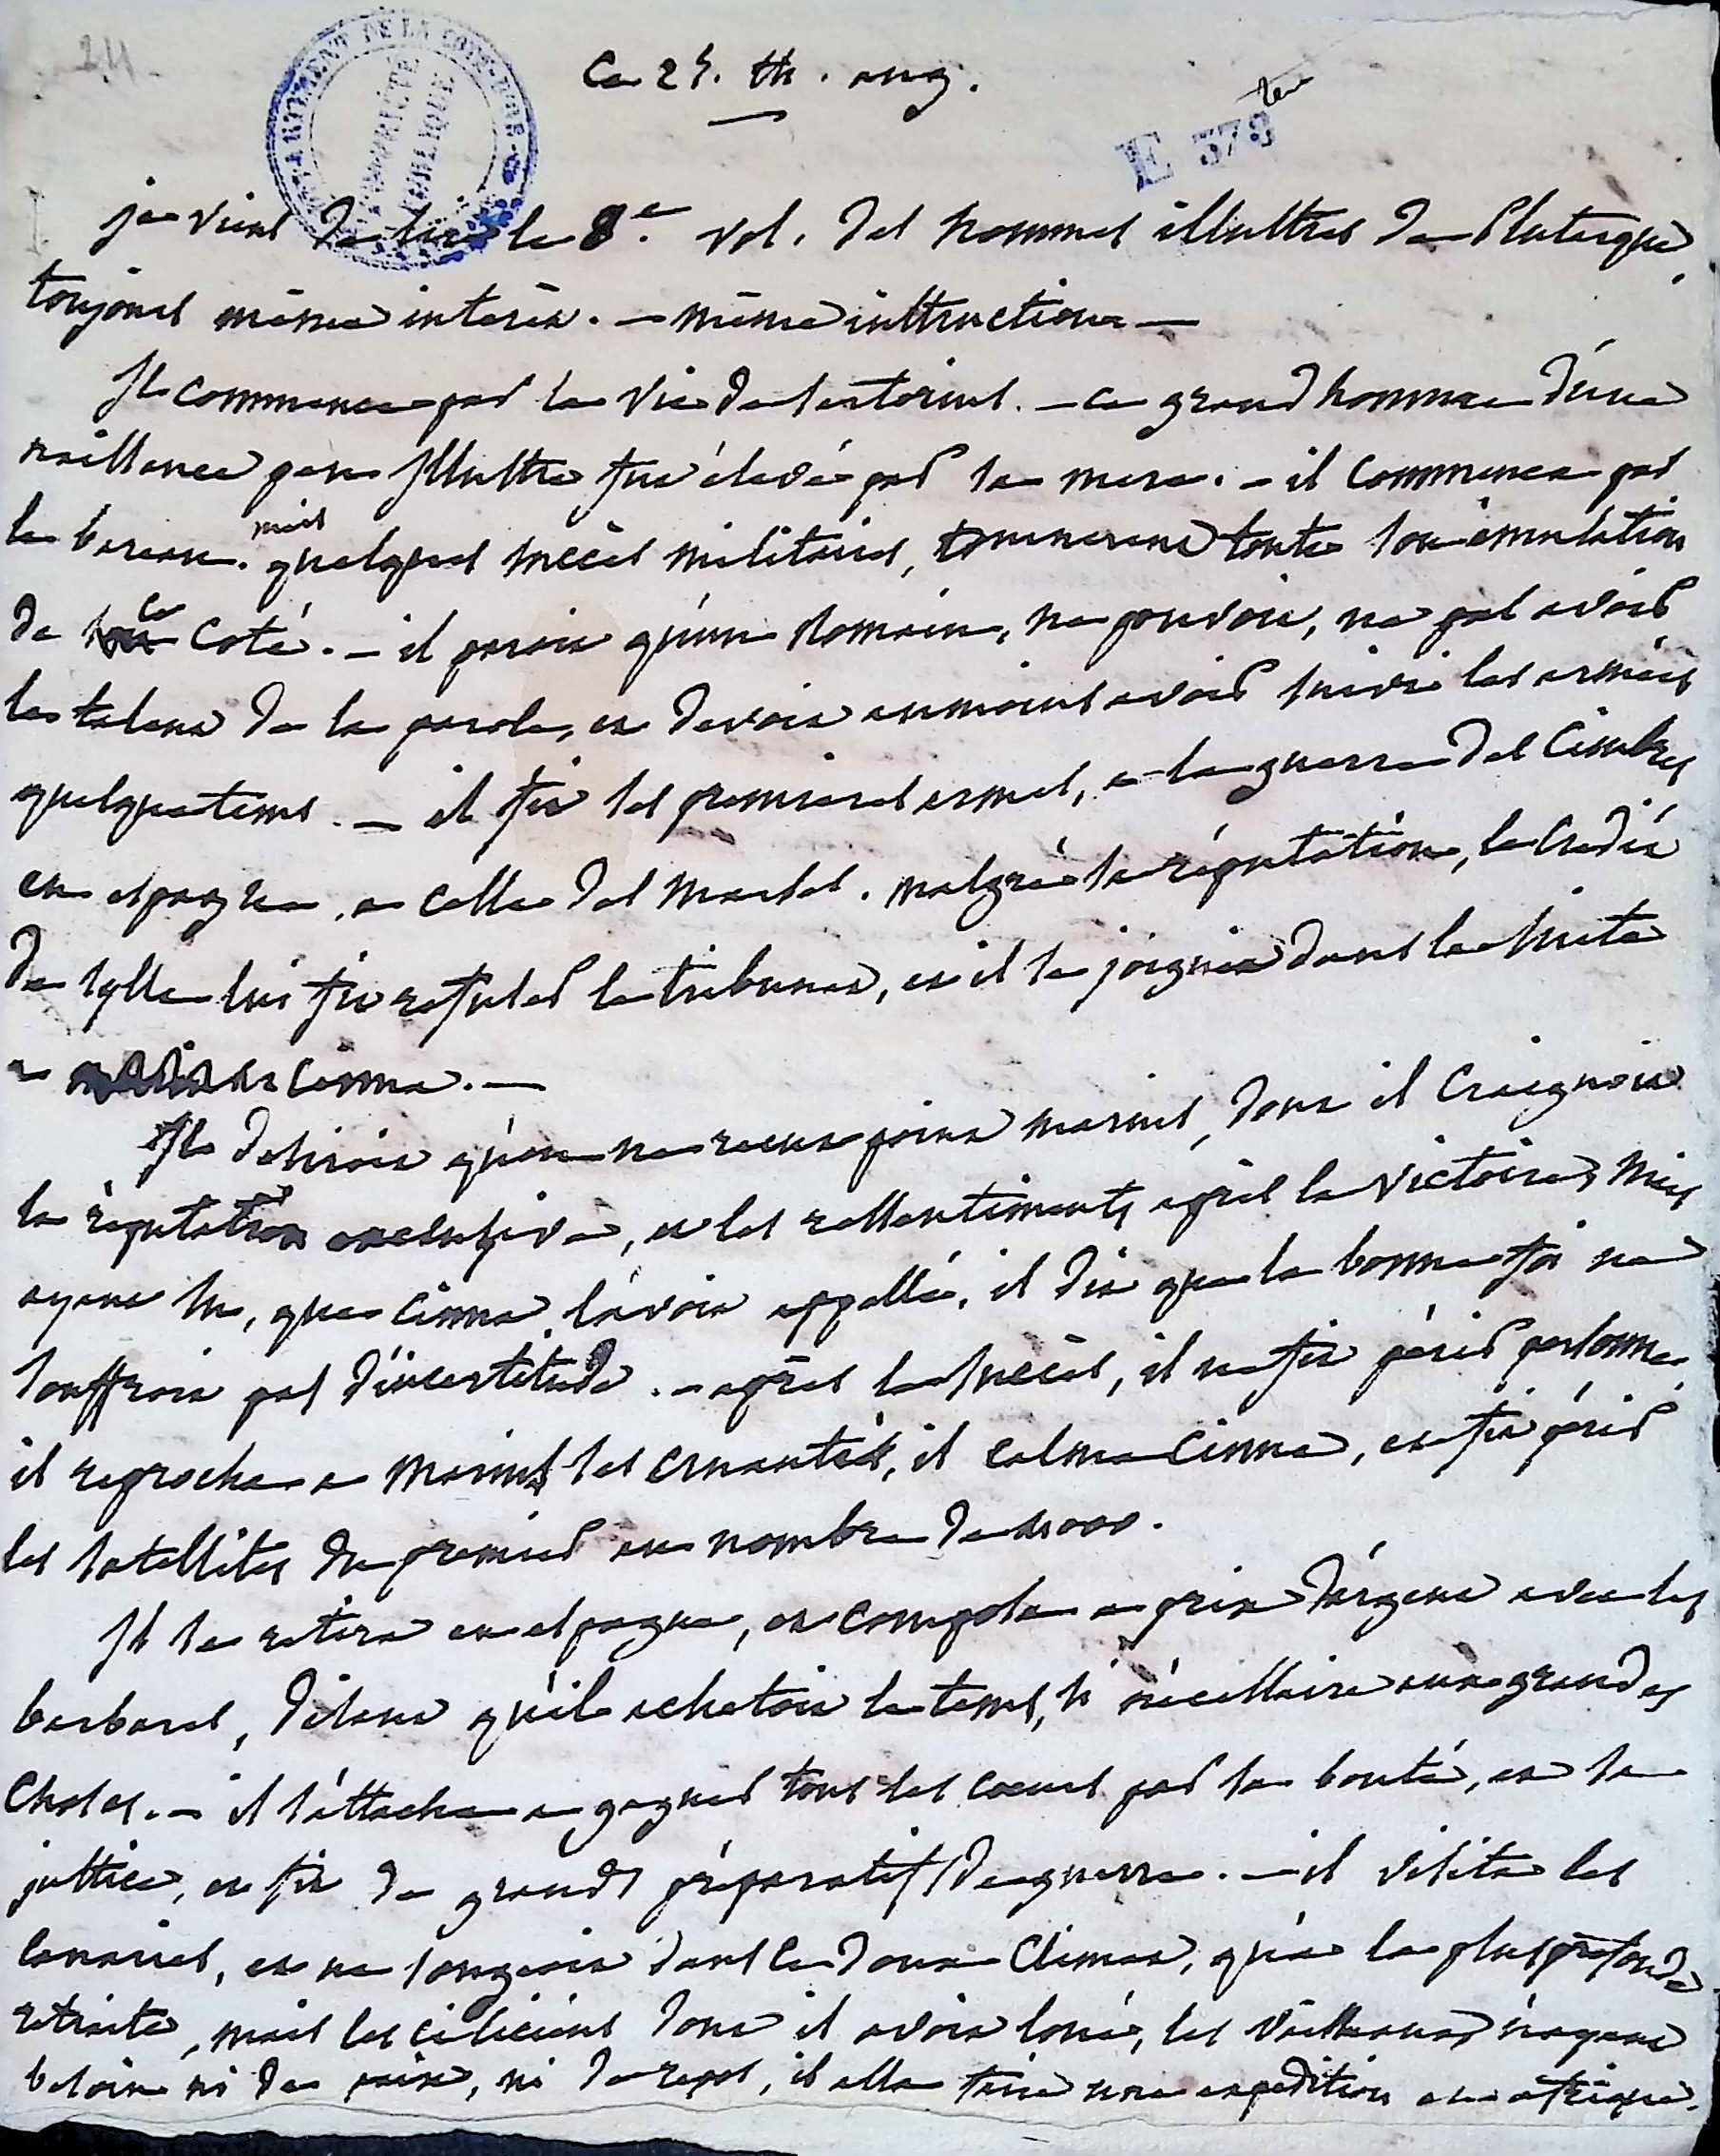 24.
DEPARTEMENT DE LA COTE-D'OR
PROPRIÉTÉ
PUBLIQUE
Ce 25. th. aug.
E 378 ter
je viens de lire le 8e. vol. des hommes illustres de Plutarque,
toujours même intérêt. — même instruction —
Il commence par la vie de sertorius. — ce grand homme d'une
naissance peu Illustre fut élevé par sa mere. — il commenca par
le bareau. mais quelques succès militaires, tournerent toute son émulation
de ce coté. — il paroit qu'un Romain, ne pouvoit, ne pas avoir
le talent de la parole, et devoit aumoins avoir suivi les armées
quelque tems. — il fit ses premieres armes, a la guerre des Cimbres
en espagne, a celle des Marses. malgré sa réputation, le crédit
de sylla lui fit refuser le tribunat, et il se joignit dans la suite
a Cinna. —
Il desiroit qu'on ne recut point marius, dont il craignoit
la réputation exclusive, et les ressentiments après la victoire, mais
ayant su, que Cinna l'avoit appellé, il dit que la bonne foi ne
souffroit pas d'incertitude. — après le succès, il ne fit périr personne,
il reprocha a Marius ses cruautés, il calma Cinna, et fit périr
les satellites du premier au nombre de 4000.
Il se retira en espagne, et composa a prix d'argent avec les
barbares, disant qu'il achetoit le tems, si nécessaire aux grandes
choses. — il s'attacha a gagner tous les coeurs par sa bonté, et sa
justice, et fit de grands préparatifs de guerre. — il visita les
canaries, et ne songeoit dans ce doux Climat, qu'a la plus profonde
retraite, mais les ciliciens dont il avoit loué, les vaisseaux n'ayant
besoin ni de paix, ni de repos, il alla faire une expédition en afrique.